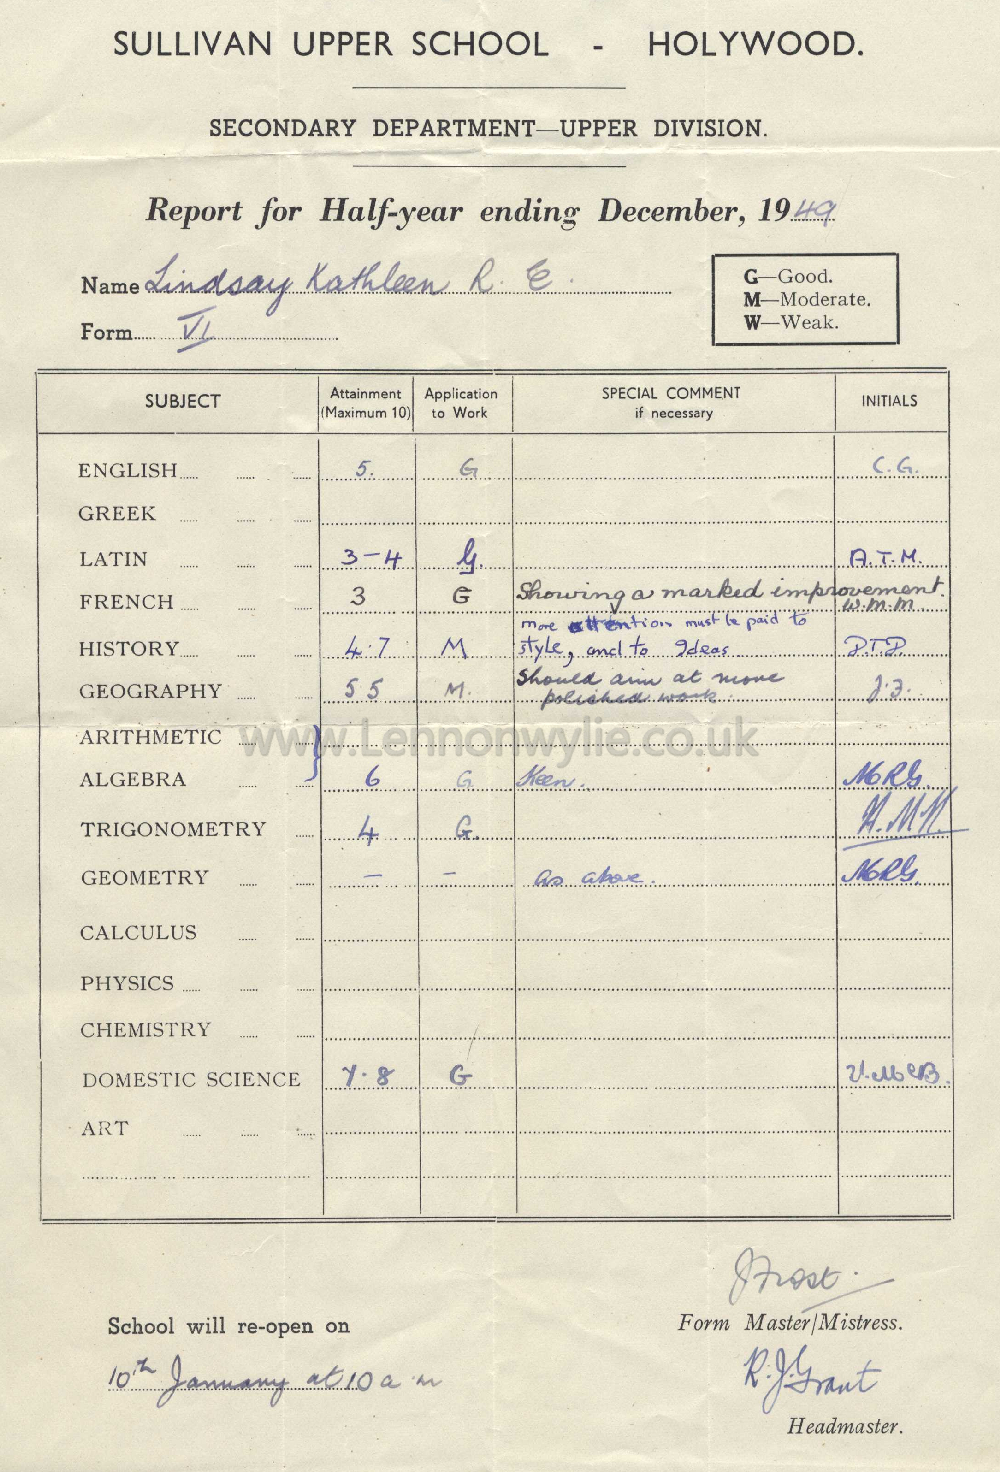 SULLIVAN UPPER SCHOOL - HOLYWOOD.
SECONDARY DEPARTMENT—UPPER DIVISION.
Report for Half-year ending December, 1949
Name Lindsay Kathleen R. E.
Form VI
G—Good.
M—Moderate.
W—Weak.
SUBJECT Attainment (Maximum 10) Application to Work SPECIAL COMMENT if necessary INITIALS
ENGLISH 5. G C.G.
GREEK
LATIN 3-4 G. A.T.M.
FRENCH 3 G Showing a marked improvement. W.M.M
HISTORY 4.7 M more attention must be paid to
style, and to Ideas D.T.D.
GEOGRAPHY 5 5 M. Should aim at more
polished work. J.F.
ARITHMETIC
www.Lennonwylie.co.uk
ALGEBRA 6 G Keen. MRG.
TRIGONOMETRY 4 G.
GEOMETRY - - as above. MRG.
CALCULUS
PHYSICS
CHEMISTRY
DOMESTIC SCIENCE 7.8 G V.McB.
ART
JFrost.
School will re-open on Form Master/Mistress.
10th January at 10 a m R.J.Grant
Headmaster.